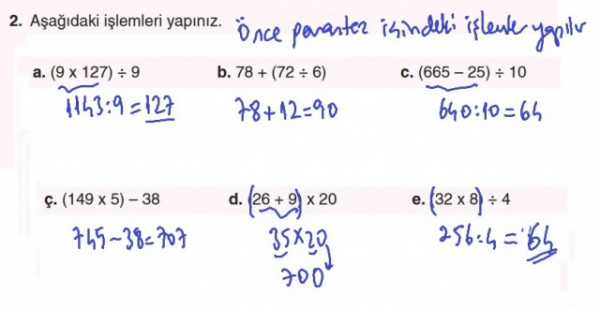 2. Aşağıdaki işlemleri yapınız. Önce parantez içindeki işlemler yapılır
a. (9 x 127) ÷ 9 b. 78 + (72 ÷ 6) c. (665 – 25) ÷ 10
1143:9=127 78+12=90 640:10=64
ç. (149 x 5) – 38 d. (26 + 9) x 20 e. (32 x 8) ÷ 4
745-38=707 35x20 256:4=64
700